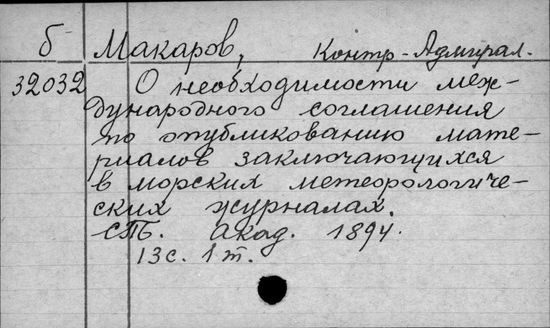 б Макаров, Контр-Адмирал.
32032 О необходимости меж-
дународного соглашения
по опубликованию мате-
риалов заключающихся
в морских метеорологиче-
ских журналах.
СПБ. Акад. 1894.
13с. 1т.